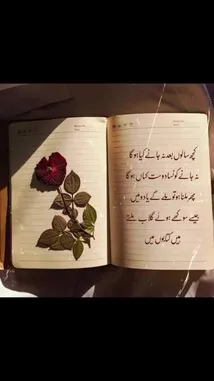 کچھ سالوں بعد نہ جانے کیا ہوگا
نہ جانے کونسا دوست کہاں ہوگا
پھر ملنا ہو تو ملے گے یادو میں
جیسے سوکھے ہوئے گلاب ملتے
ہیں کتابوں میں